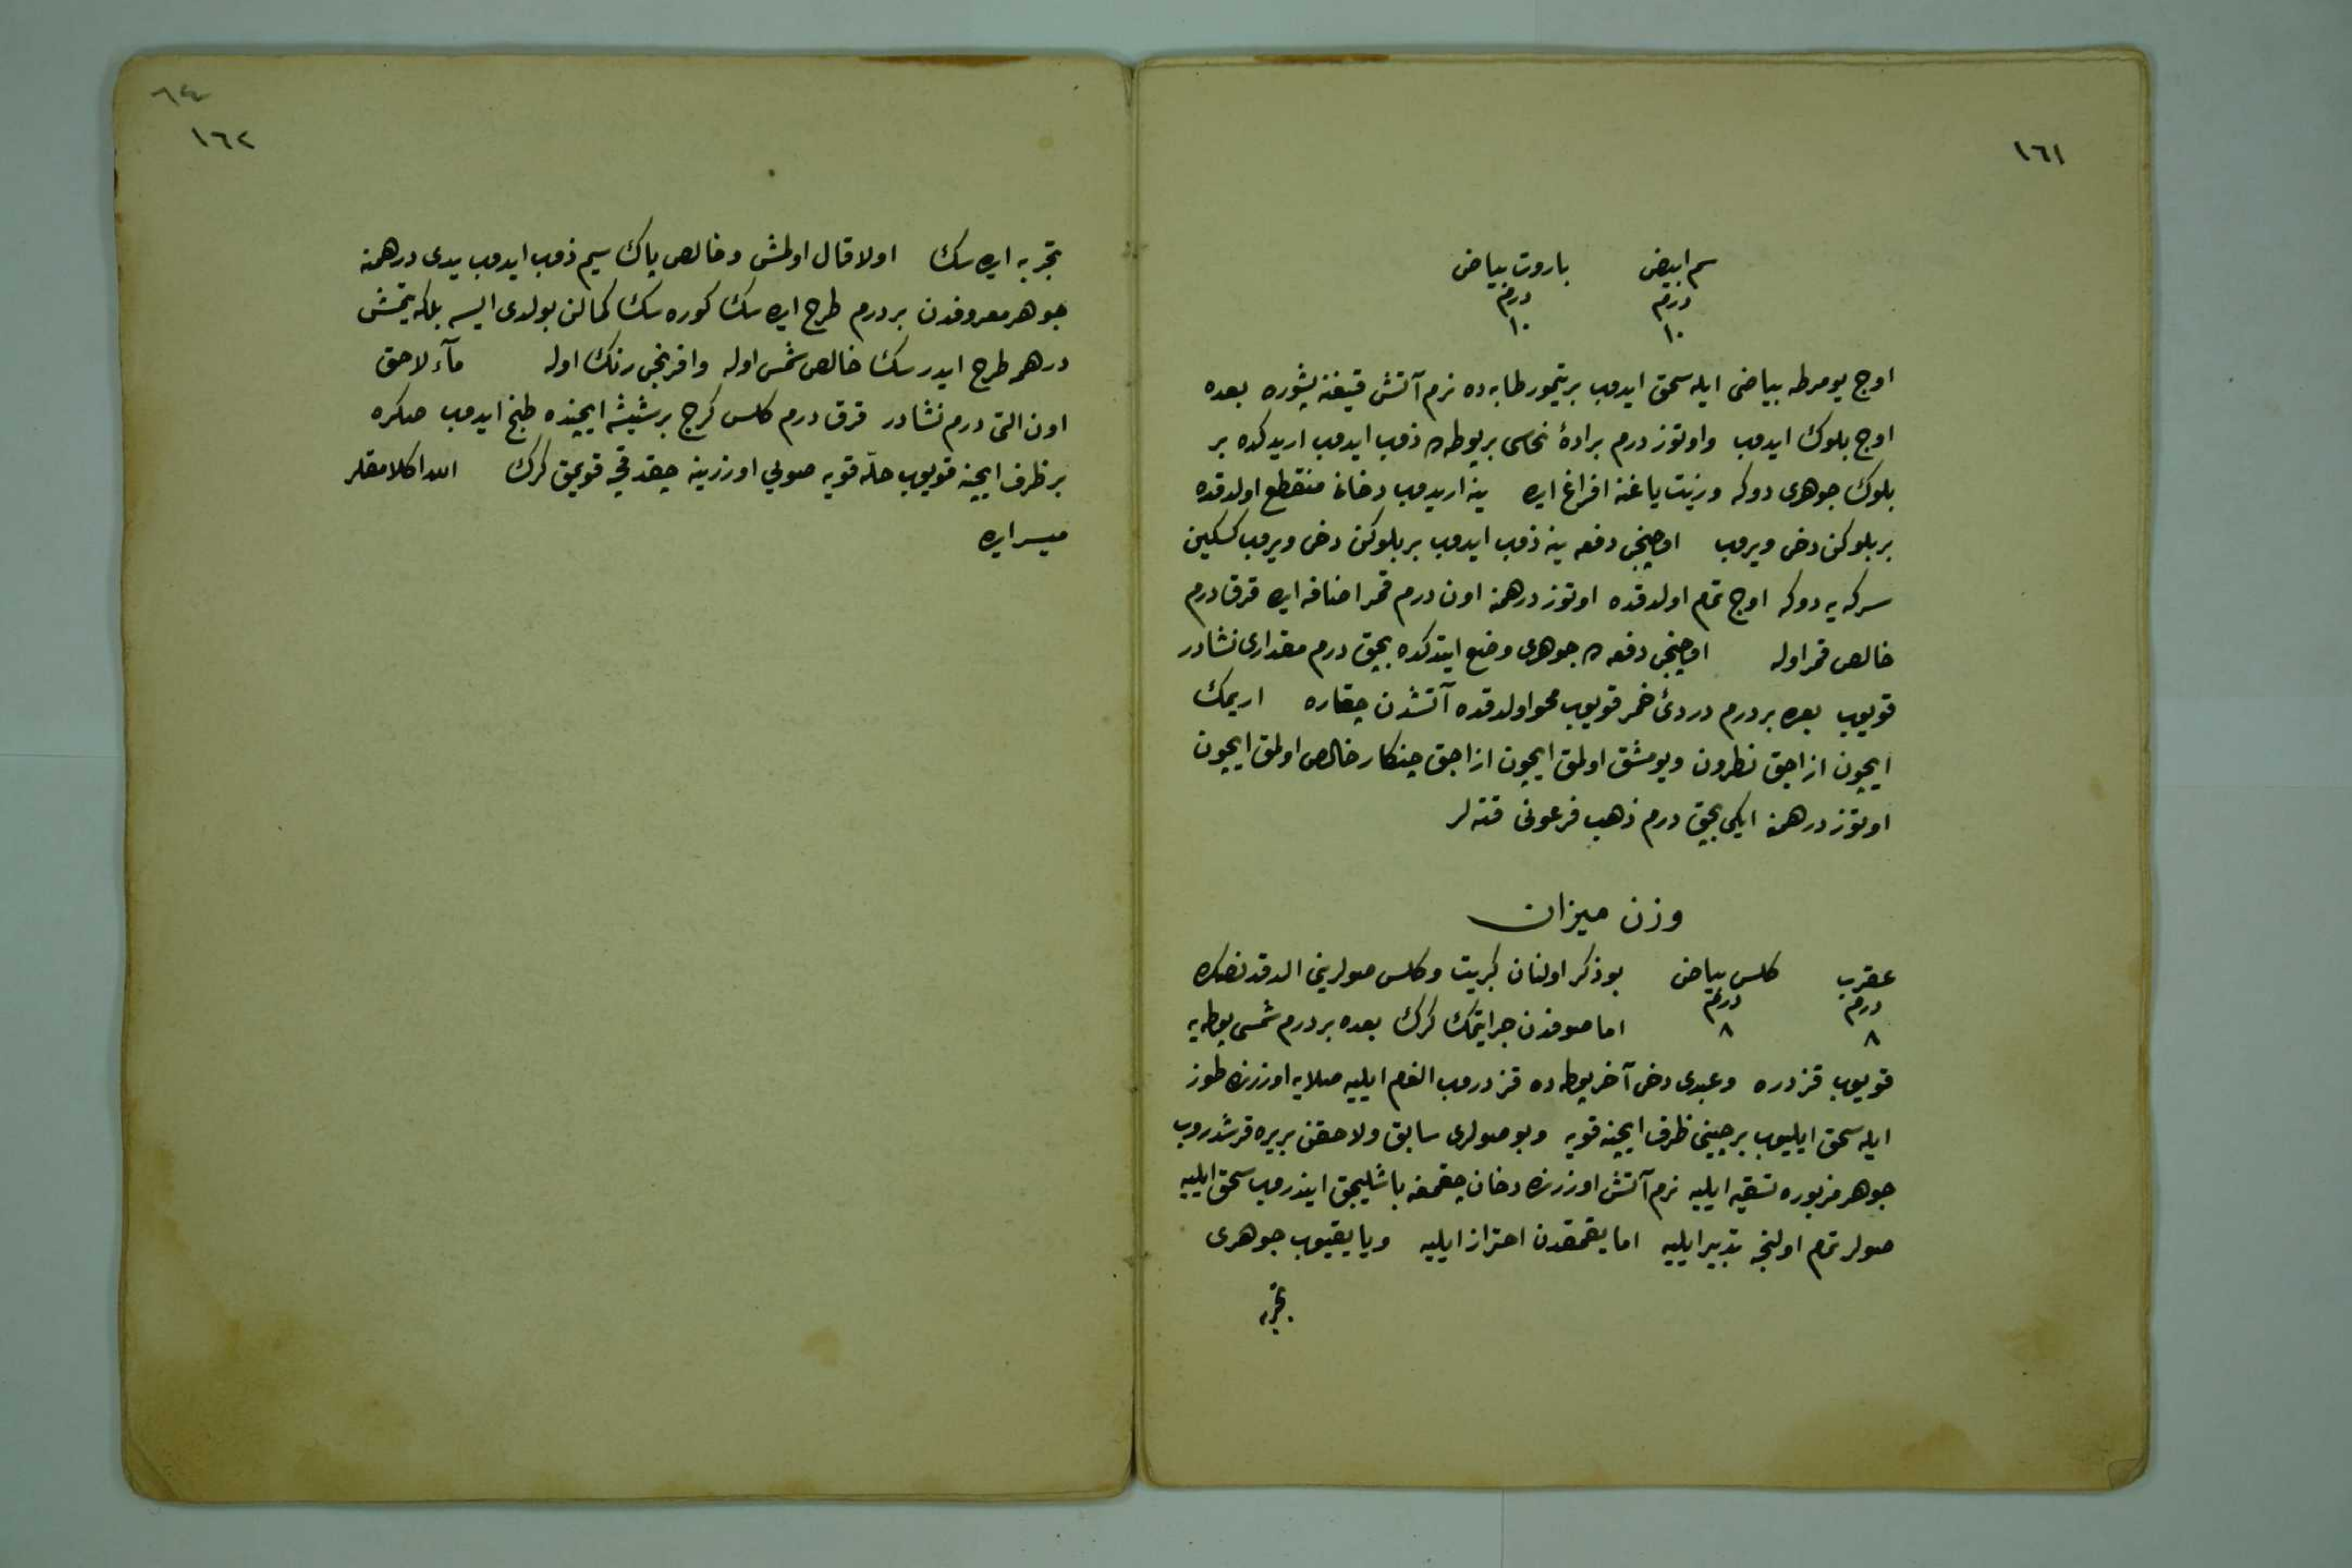 ١٦١
سم ابيض باروت بياض
درم درم
١٠ ١٠
اوج يومرطه بياضى ايله سحق ايدوب بر تيمور طابه ده نرم آتش قيفنه پشوره بعده
اوج بلوك ايدوب واوتوز درم برادهٔ نحاسى بر پوطه ده ذوب ايدوب اريدكده بر
بلوك جوهرى دوكه وزيت ياغنه افراغ ايده ينه اريدوب دخانى منقطع اولدقده
بر بلوكن دخى ويروب اوچنجى دفعه ينه ذوب ايدوب بر بلوكن دخى ويروب كسكين
سركه يه دوكه اوج تمام اولدقده اوتوز درهمنه اون درم قمر اضافه ايده قرق درم
خالص قمر اوله اوچنجى دفعه ده جوهرى وضع ايتدكده بچق درم مقدارى نشادر
قويوب بعده بر درم دردىٔ خمر قويوب محو اولدقده آتشدن چقاره اريمك
ايچون ازاجق نطرون ويومشق اولمق ايچون ازاجق چنكار خالص اولمق ايچون
اوتوز درهمنه ايكى بچق درم ذهب فرعونى قته لر
وزن ميزان
عقرب كلس بياض بو ذكر اولنان كبريت وكلس صولرينى الدقدنصكره
درم درم
٨ ٨ اما صوفدن جر ايتمك كرك بعده بر درم شمسى پوطه يه
قويوب قزدره وعبدى دخى آخر پوطه ده قزدروب الغام ايليه صلايه اوزرنده طوز
ايله سحق ايليوب بر چينى ظرف ايچنه قويه وبو صولرى سابق ولاحقن بريره قرشدروب
جوهر مزبوره تسقيه ايليه نرم آتش اوزرنده دخان چقمغه باشليجق ايندروب سحق ايليه
صولر تمام اولنجه تدبير ايليه اما يقمقدن احتراز ايليه ويا يقيوب جوهرى
تجربه
٦٤
١٦٢
تجربه ايده سك اولا قال اولمش وخالص پاك سيم ذوب ايدوب يدى درهمنه
جوهر معروفدن بر درم طرح ايده سك كوره سك كمالن بولدى ايسه بلكه يتمش
درهم طرح ايدرسك خالص شمس اوله وافرنجى رنك اوله مآء لاحق
اون التى درم نشادر قرق درم كلس كرج بر شيشه ايچنده طبخ ايدوب صكره
بر ظرف ايچنه قويوب حلّه قويه صويى اوزرينه چقدقجه قويمق كرك الله اكلامقلر
ميسر ايده